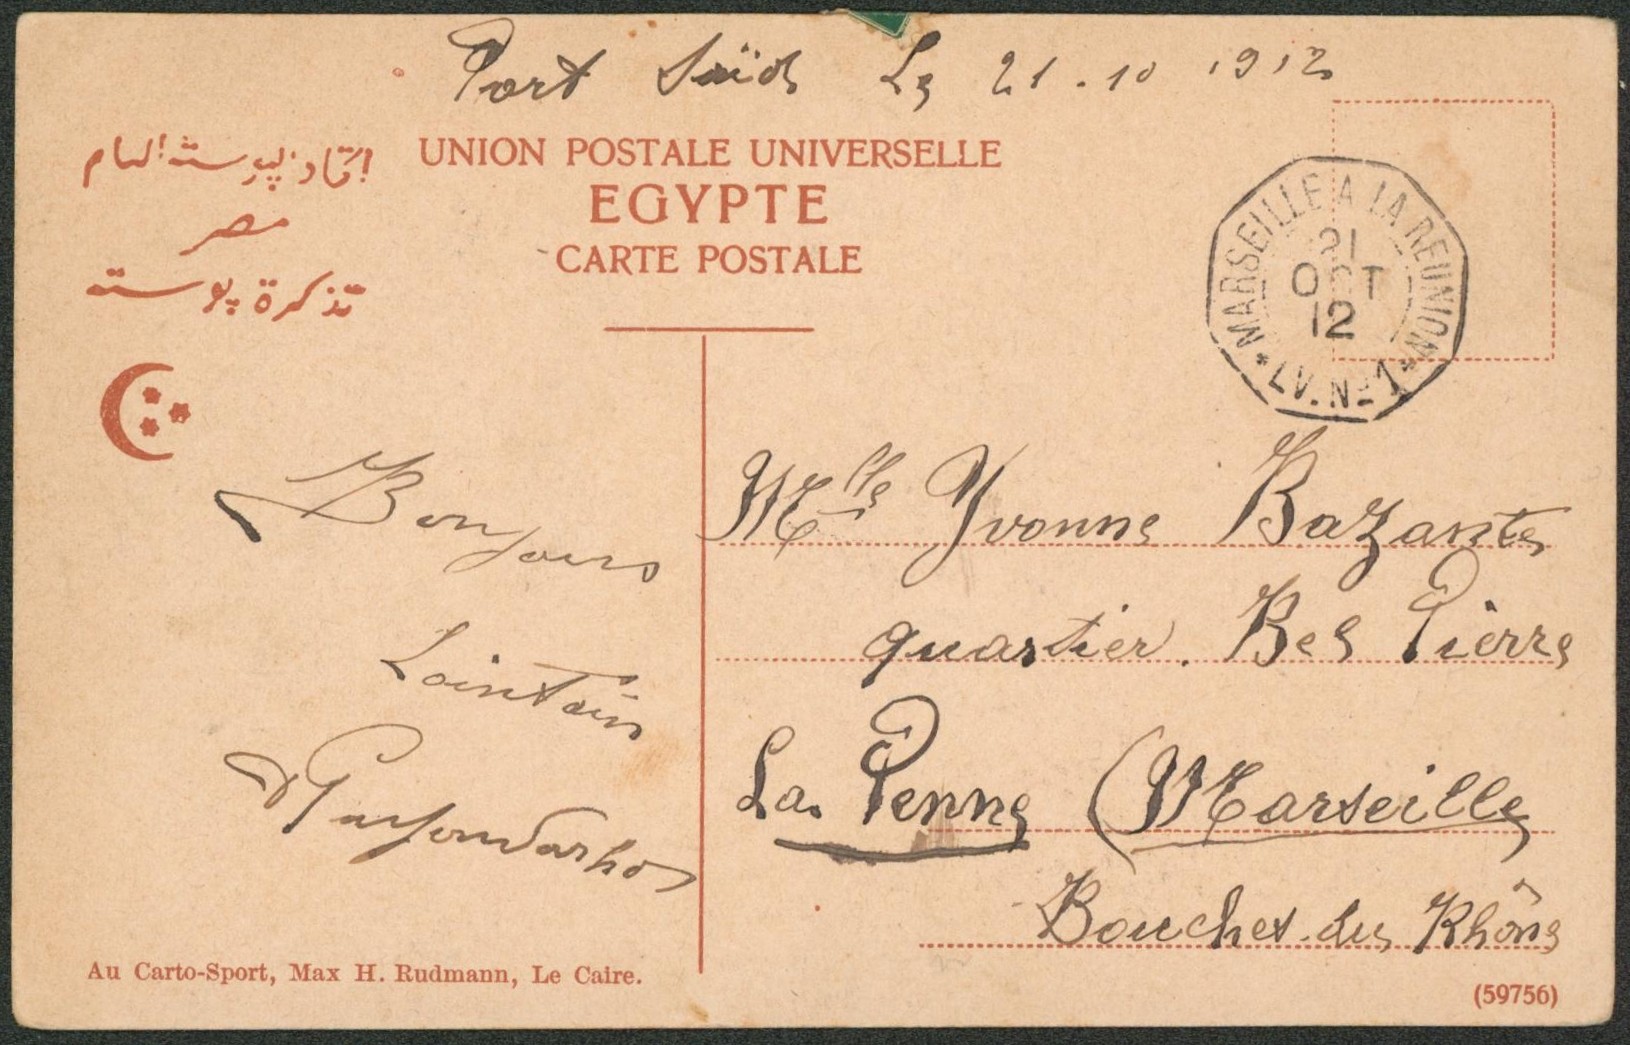 Port Saïd Le 21.10 1912
اتحاد البوسته العام
UNION POSTALE UNIVERSELLE
مصر
EGYPTE
تذكرة بوسته
CARTE POSTALE
MARSEILLE A LA REUNION
21
OCT
12
* LV. Nº 1 *
Bonjours
Lointain
Mlle Yvonne Bazante
quartier. Bel Pierre
La Penne (Marseille
Bouches du Rhône
Au Carto-Sport, Max H. Rudmann, Le Caire.
(59756)